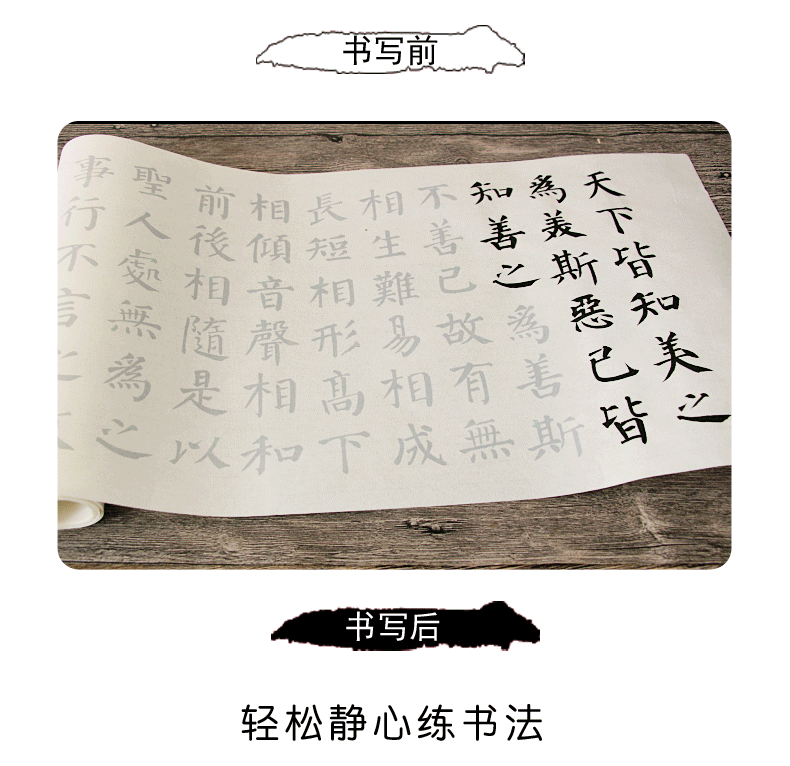 书写前
天下皆知美之
為美斯惡已皆
知善之為善斯
不善已故有無
相生難易相成
長短相形髙下
相傾音聲相和
前後相隨是以
聖人處無為之
事行不言之
书写后
轻松静心练书法